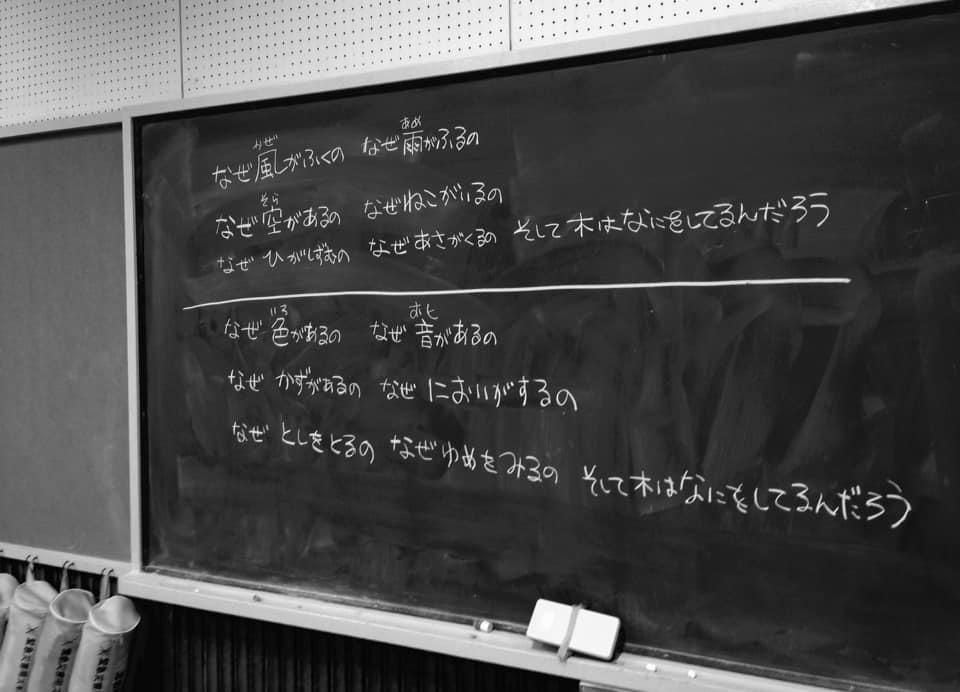 なぜ風がふくの なぜ雨がふるの
かぜ あめ
なぜ空があるの なぜねこがいるの
そら
なぜ ひがしずむの なぜあさがくるの そして木はなにをしてるんだろう
なぜ色があるの なぜ音があるの
いろ おと
なぜ かずがあるの なぜ においがするの
なぜ としをとるの なぜゆめをみるの そして木はなにをしてるんだろう